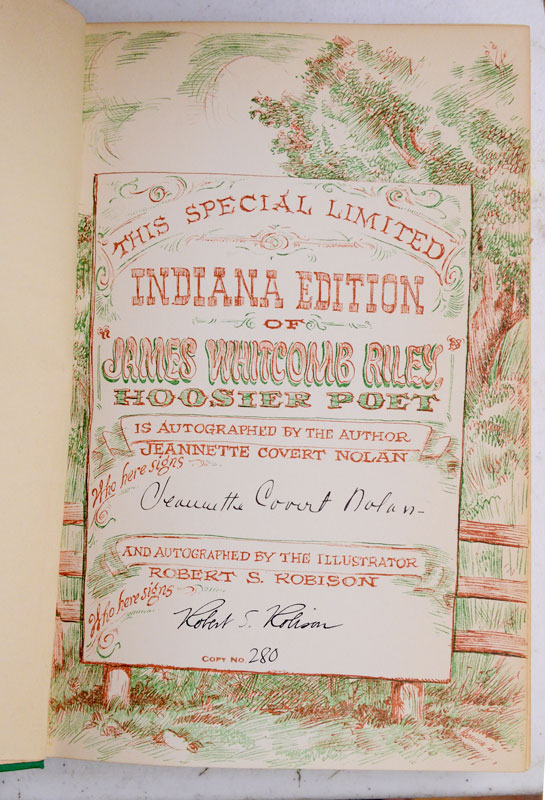 THIS SPECIAL LIMITED
INDIANA EDITION
OF
"JAMES WHITCOMB RILEY,"
HOOSIER POET
IS AUTOGRAPHED BY THE AUTHOR
JEANNETTE COVERT NOLAN
Who here signs
Jeannette Covert Nolan
AND AUTOGRAPHED BY THE ILLUSTRATOR
ROBERT S. ROBISON
Who here signs
Robert S. Robison
COPY NO. 280